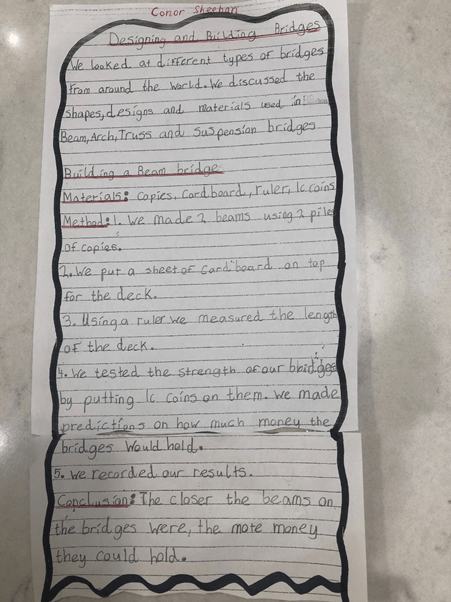 Conor Sheehan
Designing and Building Bridges
We looked at different types of bridges
from around the world. We discussed the
shapes, designs and materials used in:
Beam, Arch, Truss and Suspension bridges
Building a Beam bridge
Materials: Copies, Cardboard, ruler, 1c coins
Method: 1. We made 2 beams using 2 piles
of copies.
2. We put a sheet of cardboard on top
for the deck.
3. Using a ruler we measured the length
of the deck.
4. We tested the strength of our bridges
by putting 1c coins on them. We made
predictions on how much money the
bridges would hold.
5. We recorded our results.
Conclusion: The closer the beams on
the bridges were, the more money
they could hold.